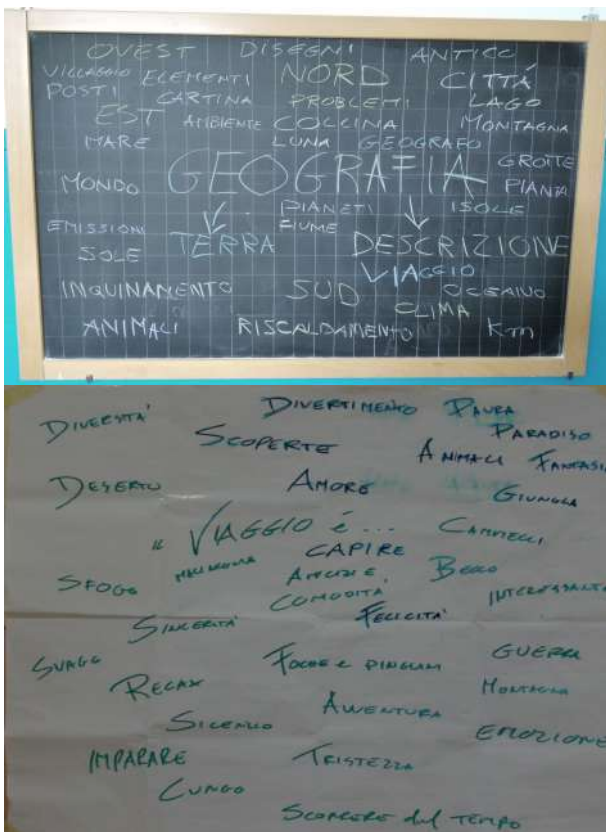 OVEST DISEGNI ANTICO
VILLAGGIO ELEMENTI NORD CITTÁ
POSTI CARTINA PROBLEMI LAGO
EST AMBIENTE COLLINA MONTAGNA
MARE LUNA GEOGRAFO
GEOGRAFIA GROTTE
MONDO PIANTA
PIANETI ISOLE
EMISSIONI FIUME
SOLE TERRA DESCRIZIONE
VIAGGIO
INQUINAMENTO SUD OCEANO
CLIMA
ANIMALI RISCALDAMENTO Km
DIVERSITÀ DIVERTIMENTO PAURA
SCOPERTE PARADISO
ANIMALI FANTASIA
DESERTO AMORE GIUNGLA
IL VIAGGIO É... CAMMELLI
CAPIRE
SFOGO MALINCONIA AMICIZIE BELLO
COMODITÀ INTERESSANTE
SINCERITÀ FELICITÀ
SVAGO FOCHE E PINGUINI GUERRA
RELAX MONTAGNA
SILENZIO AVVENTURA EMOZIONE
IMPARARE TRISTEZZA
LUNGO
SCORRERE del TEMPO